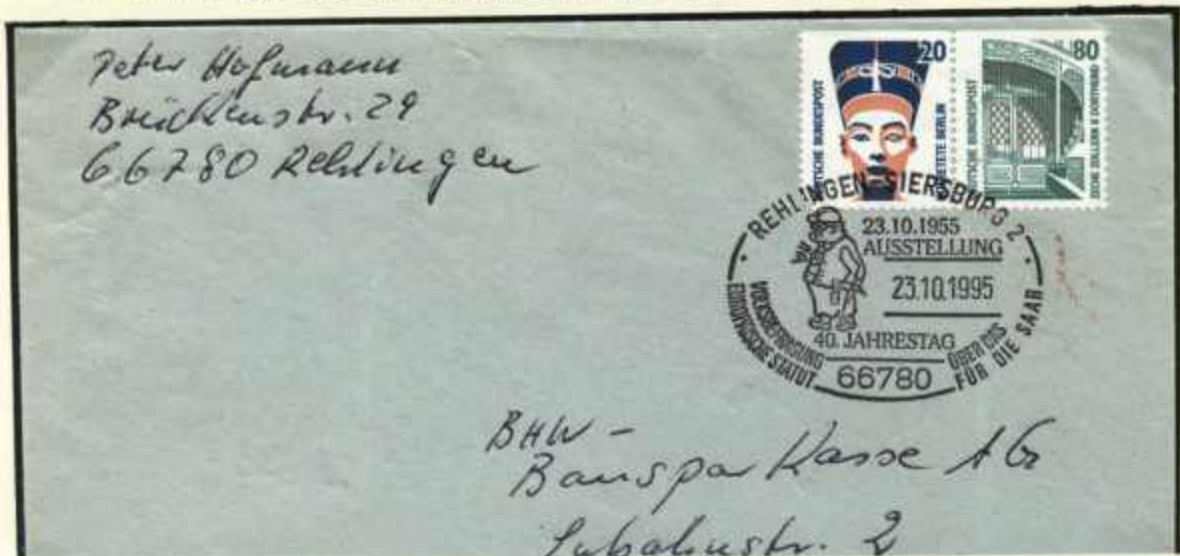 Peter Hofmann
Brückenstr. 29
66780 Rehlingen
20
DEUTSCHE BUNDESPOST
NOFRETETE BERLIN
80
DEUTSCHE BUNDESPOST
ZECHE ZOLLERN II DORTMUND
REHLINGEN-SIERSBURG 2
23.10.1955
AUSSTELLUNG
23.10.1995
40. JAHRESTAG
VOLKSBEFRAGUNG ÜBER DAS
EUROPÄISCHE STATUT FÜR DIE SAAR
66780
BHW -
Bausparkasse AG
2